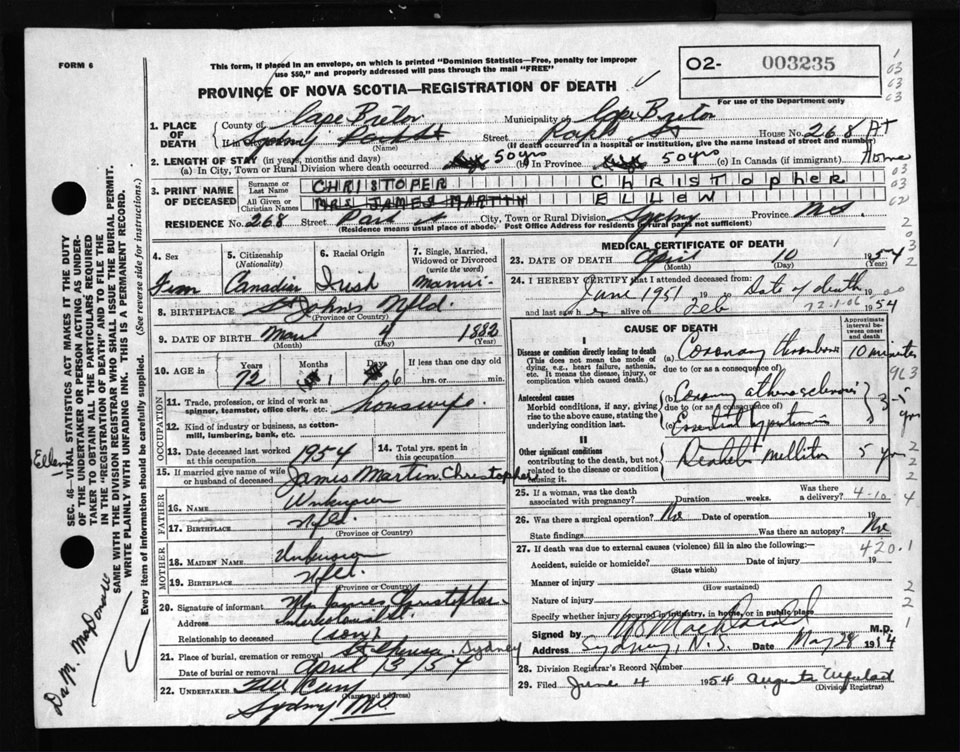 FORM 6
This form, if placed in an envelope, on which is printed "Dominion Statistics—Free, penalty for improper
use $50," and properly addressed will pass through the mail "FREE"
O2- 003235
For use of the Department only
PROVINCE OF NOVA SCOTIA—REGISTRATION OF DEATH
1. PLACE OF DEATH
County of Cape Breton Municipality of Cape Breton
If in Sydney Park St Street Park St House No. 268
(Name) (If death occurred in a hospital or institution, give the name instead of street and number)
2. LENGTH OF STAY (in years, months and days)
(a) In City, Town or Rural Division where death occurred 50 yrs (b) In Province 50 yrs (c) In Canada (if immigrant)
3. PRINT NAME OF DECEASED
Surname or Last Name CHRISTOPER CHRISTOPHER
All Given or Christian Names MRS JAMES MARTIN ELLEN
RESIDENCE No. 268 Street Park St City, Town or Rural Division Sydney Province N.S.
(Residence means usual place of abode. Post Office Address for residents in rural parts not sufficient)
4. Sex Fem
5. Citizenship (Nationality) Canadian
6. Racial Origin Irish
7. Single, Married, Widowed or Divorced (write the word)
8. BIRTHPLACE St Johns Nfld.
(Province or Country)
9. DATE OF BIRTH 4 1882
10. AGE in Years 72 Months 1 Days 6 If less than one day old
hrs. or min.
OCCUPATION
11. Trade, profession, or kind of work as spinner, teamster, office clerk, etc. housewife
12. Kind of industry or business, as cotton-mill, lumbering, bank, etc.
13. Date deceased last worked at this occupation 1954
14. Total yrs. spent in this occupation
15. If married give name of wife or husband of deceased James Martin Christopher
FATHER
16. NAME Unknown
17. BIRTHPLACE Nfld.
(Province or Country)
MOTHER
18. MAIDEN NAME Unknown
19. BIRTHPLACE Nfld.
(Province or Country)
20. Signature of informant Mr James Christopher
Address Intercolonial St.
Relationship to deceased (son)
21. Place of burial, cremation or removal St Theresa Sydney
Date of burial or removal April 13 / 54
22. UNDERTAKER
(Name and address)
Sydney
MEDICAL CERTIFICATE OF DEATH
23. DATE OF DEATH April 10 1954
(Month) (Day) (Year)
24. I HEREBY CERTIFY that I attended deceased from:
June 1951 to Date of death
and last saw h alive on Feb 1954
CAUSE OF DEATH
Approximate interval between onset and death
I
Disease or condition directly leading to death
(This does not mean the mode of dying, e.g., heart failure, asthenia, etc. It means the disease, injury, or complication which caused death.)
(a) Coronary thrombosis 10 minutes
due to (or as a consequence of)
Antecedent causes
Morbid conditions, if any, giving rise to the above cause, stating the underlying condition last.
(b) Coronary atherosclerosis
due to (or as a consequence of)
(c) Essential hypertension
3-5 yrs
II
Other significant conditions
contributing to the death, but not related to the disease or condition causing it.
Diabetes mellitus 5 yrs
25. If a woman, was the death associated with pregnancy? Duration weeks. Was there a delivery? 4-10
26. Was there a surgical operation? No Date of operation 19
State findings Was there an autopsy? No
27. If death was due to external causes (violence) fill in also the following:— 420.1
Accident, suicide or homicide? Date of injury 19
(State which)
Manner of injury
(How sustained)
Nature of injury
Specify whether injury occurred in industry, in home, or in public place
Signed by MacDonald M.D.
Address Sydney, N.S. Date May 28 1954
28. Division Registrar's Record Number
29. Filed June 4 1954
(Division Registrar)
SEC. 46—VITAL STATISTICS ACT MAKES IT THE DUTY
OF THE UNDERTAKER OR PERSON ACTING AS UNDERTAKER TO OBTAIN ALL THE PARTICULARS REQUIRED
IN THE "REGISTRATION OF DEATH" AND TO FILE THE
SAME WITH THE DIVISION REGISTRAR WHO SHALL ISSUE THE BURIAL PERMIT.
WRITE PLAINLY WITH UNFADING INK. THIS IS A PERMANENT RECORD.
Every item of information should be carefully supplied. (See reverse side for instructions.)
Ellen
Dr. M. MacDonald